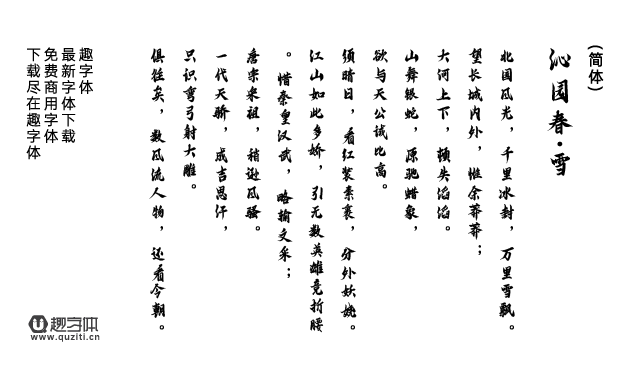 (简体)
沁园春·雪
北国风光，千里冰封，万里雪飘。
望长城内外，惟余莽莽；
大河上下，顿失滔滔。
山舞银蛇，原驰蜡象，
欲与天公试比高。
须晴日，看红装素裹，分外妖娆。
江山如此多娇，引无数英雄竞折腰
。惜秦皇汉武，略输文采；
唐宗宋祖，稍逊风骚。
一代天骄，成吉思汗，
只识弯弓射大雕。
俱往矣，数风流人物，还看今朝。
趣字体
最新字体下载
免费商用字体
下载尽在趣字体
趣字体
www.quziti.cn